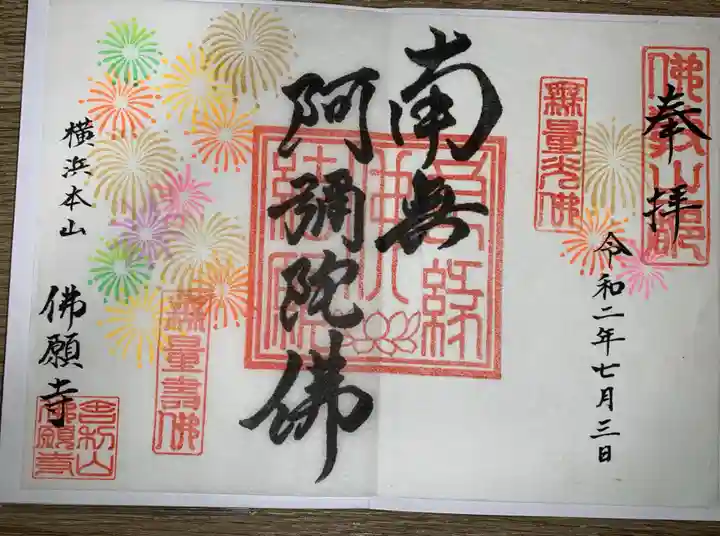 奉拝
令和二年七月三日
無量光佛
南無
阿彌陀佛
無量壽佛
横浜本山
佛願寺